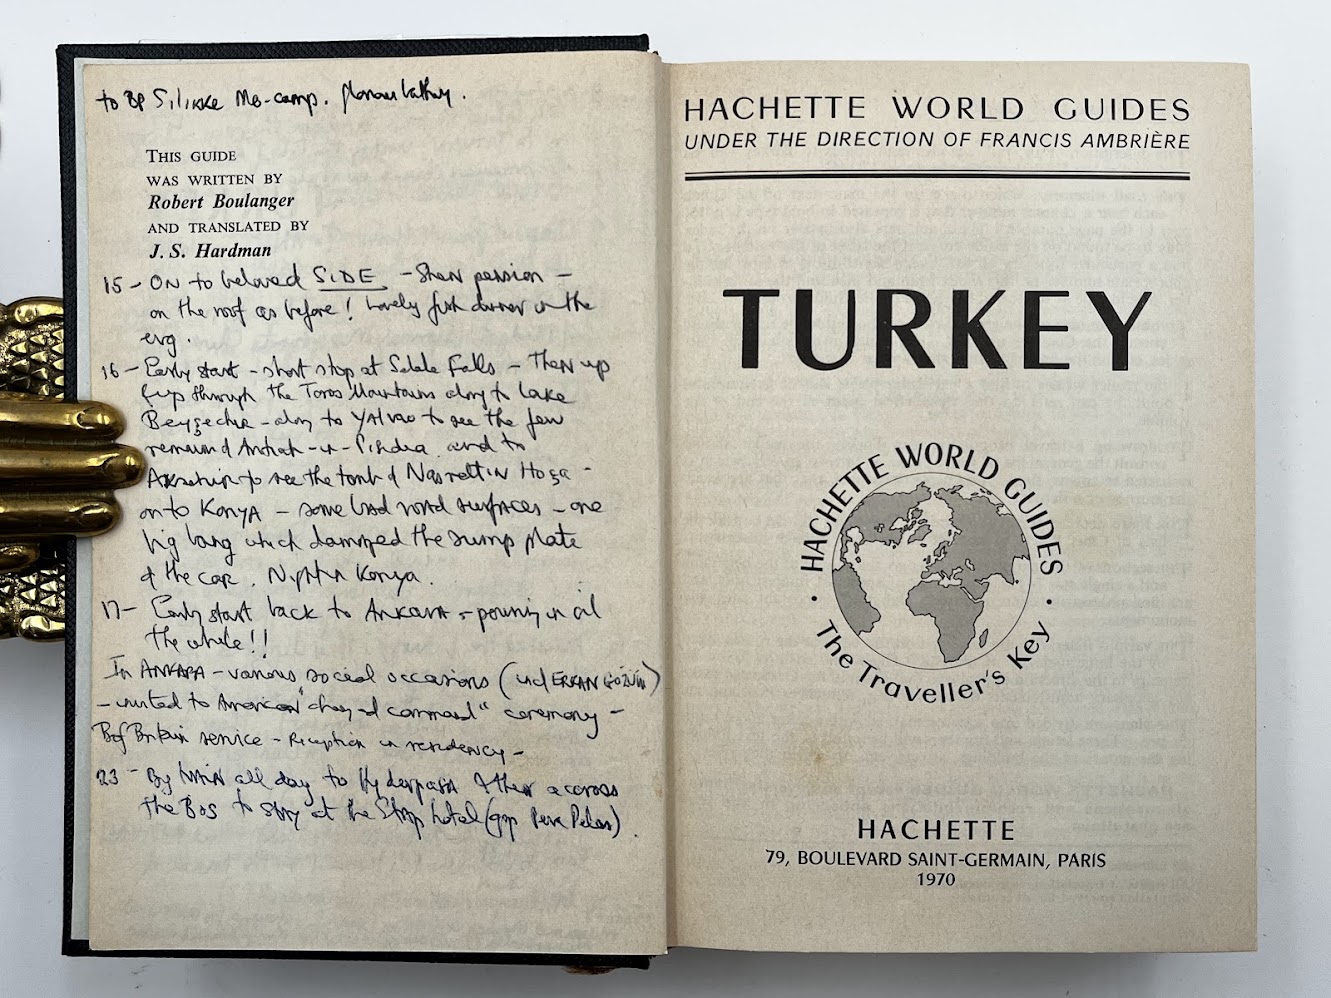 to BP Silikke Mo-camp. glorious bathing.
THIS GUIDE
WAS WRITTEN BY
Robert Boulanger
AND TRANSLATED BY
J. S. Hardman
15 - On to beloved SIDE - pension -
on the roof as before! Lovely fish dinner in the
evg.
16 - Early start - short stop at Falls - Then up
& up through the Toros Mountains along to Lake
- along to to see the few
remains of Antioch-in-Pisidia and to
to see the tomb of Hoga -
on to KONYA - some bad road surfaces - one
big bang which damaged the sump plate
of the car. Night in Konya.
17 - Early start back to ANKARA - pouring in oil
the while!!
In ANKARA - various social occasions (incl ERKAN
- invited to American "change of command" ceremony -
B of Britain service - Reception in residency -
23 - By train all day to & then across
the Bos to stay at the hotel (opp Pera Palas).
HACHETTE WORLD GUIDES
UNDER THE DIRECTION OF FRANCIS AMBRIÈRE
TURKEY
HACHETTE WORLD GUIDES
The Traveller's Key
HACHETTE
79, BOULEVARD SAINT-GERMAIN, PARIS
1970